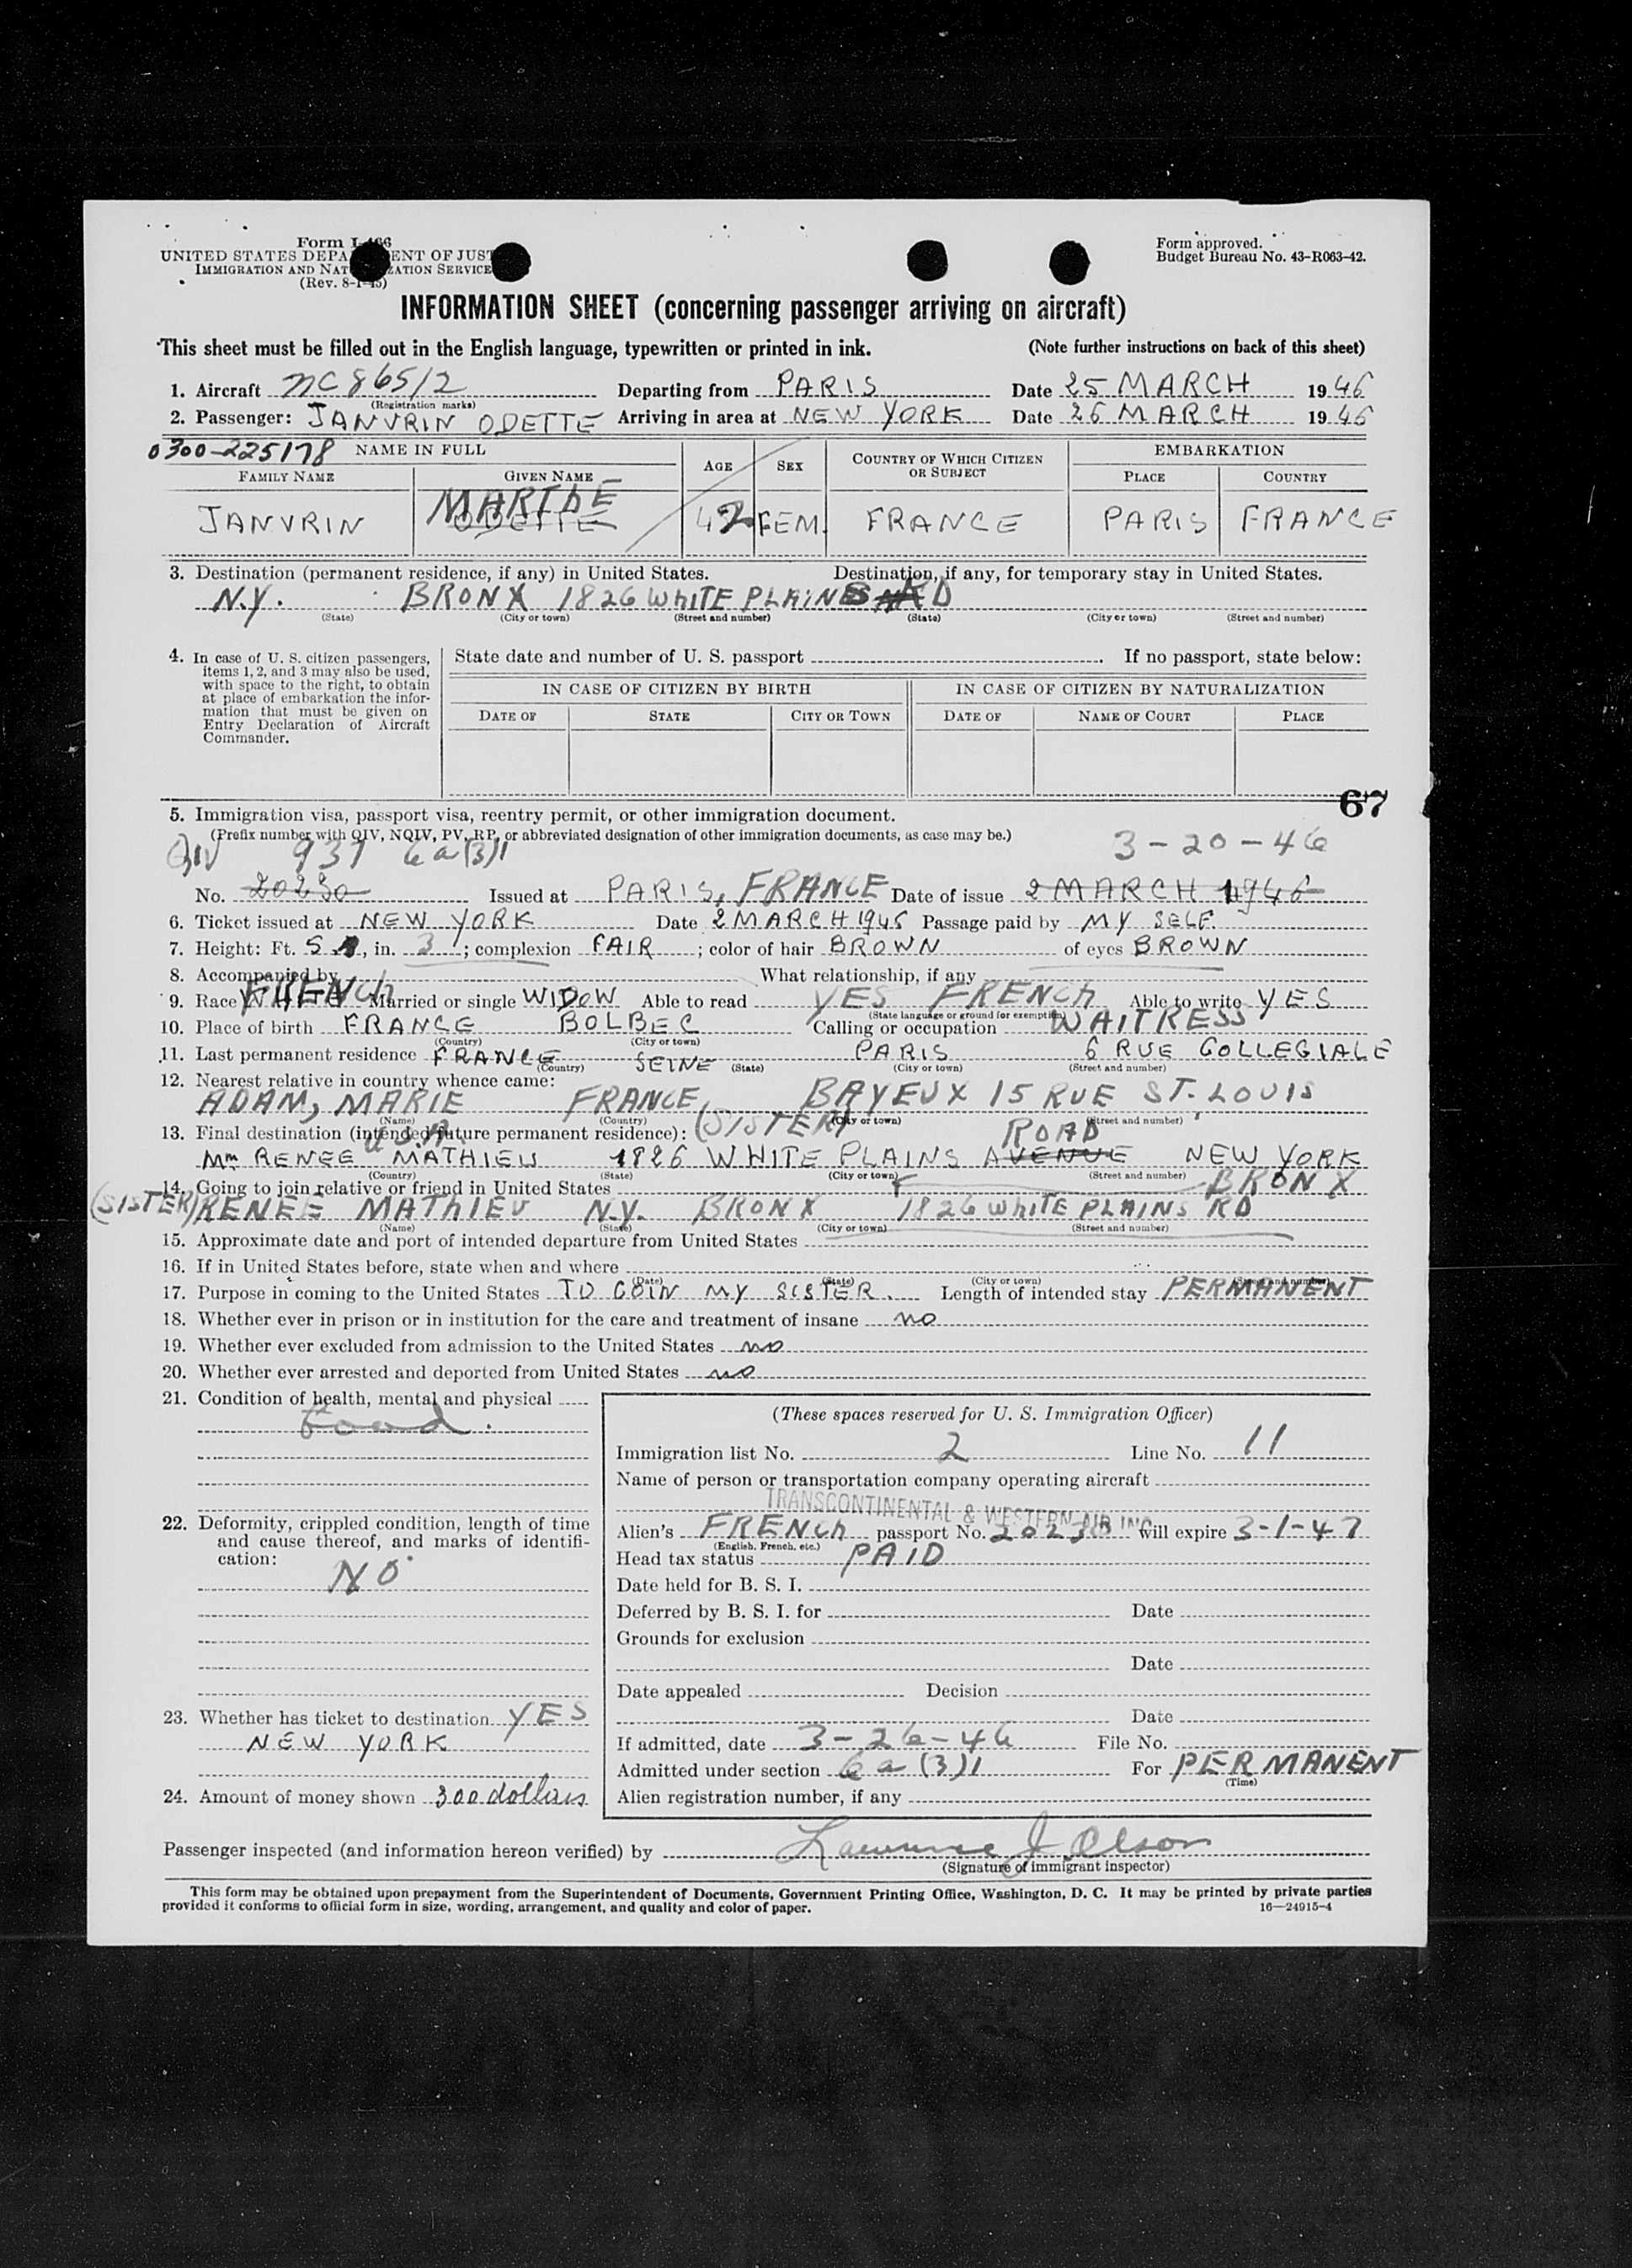 Form I-466
UNITED STATES DEPARTMENT OF JUSTICE
IMMIGRATION AND NATURALIZATION SERVICE
(Rev. 8-1-45)
Form approved.
Budget Bureau No. 43-R063-42.
INFORMATION SHEET (concerning passenger arriving on aircraft)
This sheet must be filled out in the English language, typewritten or printed in ink. (Note further instructions on back of this sheet)
1. Aircraft NC 86512 Departing from PARIS Date 25 MARCH 1946
(Registration marks)
2. Passenger: JANVRIN ODETTE Arriving in area at NEW YORK Date 26 MARCH 1946
0300-225178 NAME IN FULL AGE SEX COUNTRY OF WHICH CITIZEN OR SUBJECT EMBARKATION
FAMILY NAME GIVEN NAME PLACE COUNTRY
MARThE
JANVRIN ODETTE 42 FEM. FRANCE PARIS FRANCE
3. Destination (permanent residence, if any) in United States. Destination, if any, for temporary stay in United States.
N.Y. BRONX 1826 WhITE PLAINS RD
(State) (City or town) (Street and number) (State) (City or town) (Street and number)
4. In case of U. S. citizen passengers, items 1, 2, and 3 may also be used, with space to the right, to obtain at place of embarkation the information that must be given on Entry Declaration of Aircraft Commander.
State date and number of U. S. passport . If no passport, state below:
IN CASE OF CITIZEN BY BIRTH IN CASE OF CITIZEN BY NATURALIZATION
DATE OF STATE CITY OR TOWN DATE OF NAME OF COURT PLACE
67
5. Immigration visa, passport visa, reentry permit, or other immigration document.
(Prefix number with QIV, NQIV, PV, RP, or abbreviated designation of other immigration documents, as case may be.)
QIV 937 6a(3)1 3-20-46
No. 20230 Issued at PARIS, FRANCE Date of issue 2 MARCH 1946
6. Ticket issued at NEW YORK Date 2 MARCH 1946 Passage paid by MY SELF.
7. Height: Ft. 5, in. 3; complexion FAIR; color of hair BROWN of eyes BROWN
8. Accompanied by What relationship, if any
9. Race FRENCh Married or single WIDOW Able to read YES FRENCh Able to write YES
(State language or ground for exemption)
10. Place of birth FRANCE BOLBEC Calling or occupation WAITRESS
(Country) (City or town)
11. Last permanent residence FRANCE SEINE PARIS 6 RUE COLLEGIALE
(Country) (State) (City or town) (Street and number)
12. Nearest relative in country whence came:
ADAM, MARIE FRANCE BAYEUX 15 RUE ST. LOUIS
(Name) (Country) (City or town) (Street and number)
(SISTER)
13. Final destination (intended future permanent residence):
U.S.A. ROAD
Mm RENEE MATHIEU 1826 WHITE PLAINS AVENUE NEW YORK
(Country) (State) (City or town) (Street and number)
14. Going to join relative or friend in United States BRONX
(SISTER) RENEE MATHIEU N.Y. BRONX 1826 WhITE PLAINS RD
(Name) (State) (City or town) (Street and number)
15. Approximate date and port of intended departure from United States
16. If in United States before, state when and where
(Date) (State) (City or town) (Street and number)
17. Purpose in coming to the United States TO GOIN MY SISTER. Length of intended stay PERMANENT
18. Whether ever in prison or in institution for the care and treatment of insane no
19. Whether ever excluded from admission to the United States no
20. Whether ever arrested and deported from United States no
21. Condition of health, mental and physical
Good.
22. Deformity, crippled condition, length of time and cause thereof, and marks of identification:
NO
23. Whether has ticket to destination YES
NEW YORK
24. Amount of money shown 300 dollars
(These spaces reserved for U. S. Immigration Officer)
Immigration list No. 2 Line No. 11
Name of person or transportation company operating aircraft
TRANSCONTINENTAL & WESTERN AIR INC
Alien's FRENCh passport No. 20230 will expire 3-1-47
(English, French, etc.)
Head tax status PAID
Date held for B. S. I.
Deferred by B. S. I. for Date
Grounds for exclusion
Date
Date appealed Decision
Date
If admitted, date 3-26-46 File No.
Admitted under section 6a(3)1 For PERMANENT
(Time)
Alien registration number, if any
Passenger inspected (and information hereon verified) by Lawrence J Olson
(Signature of immigrant inspector)
This form may be obtained upon prepayment from the Superintendent of Documents, Government Printing Office, Washington, D. C. It may be printed by private parties
provided it conforms to official form in size, wording, arrangement, and quality and color of paper. 16—24915-4